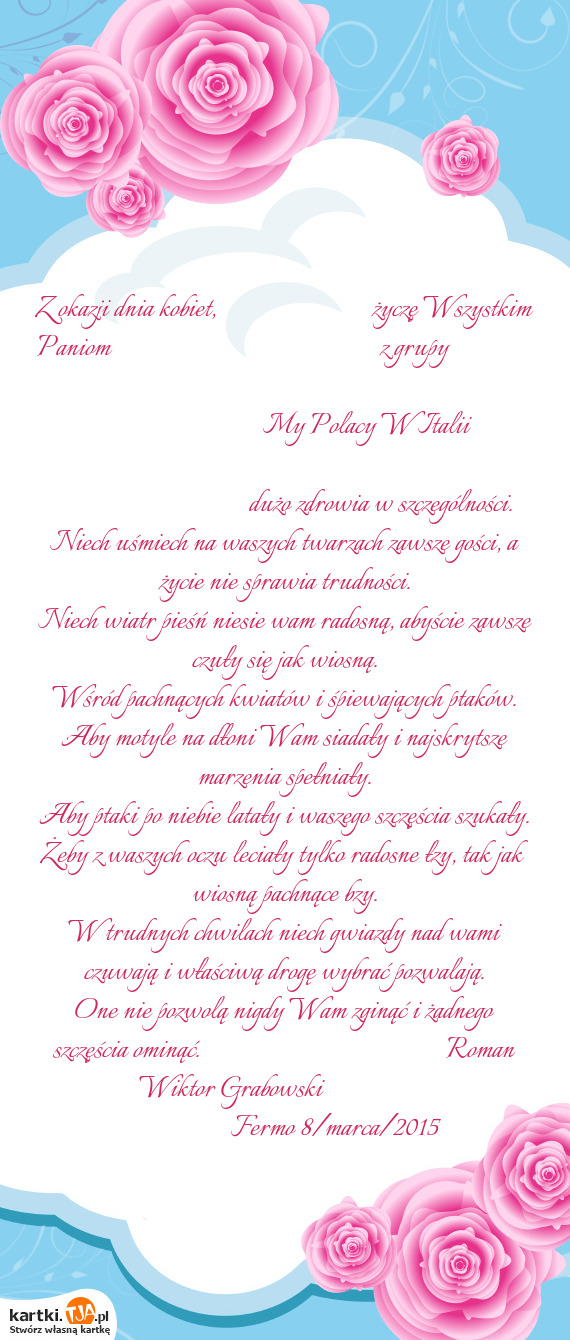 Z okazji dnia kobiet, życzę Wszystkim
Paniom z grupy
My Polacy W Italii
dużo zdrowia w szczególności.
Niech uśmiech na waszych twarzach zawsze gości, a
życie nie sprawia trudności.
Niech wiatr pieśń niesie wam radosną, abyście zawsze
czuły się jak wiosną.
Wśród pachnących kwiatów i śpiewających ptaków.
Aby motyle na dłoni Wam siadały i najskrytsze
marzenia spełniały.
Aby ptaki po niebie latały i waszego szczęścia szukały.
Żeby z waszych oczu leciały tylko radosne łzy, tak jak
wiosną pachnące bzy.
W trudnych chwilach niech gwiazdy nad wami
czuwają i właściwą drogę wybrać pozwalają.
One nie pozwolą nigdy Wam zginąć i żadnego
szczęścia ominąć. Roman
Wiktor Grabowski
Fermo 8/marca/2015
kartki.TJA.pl
Stwórz własną kartkę